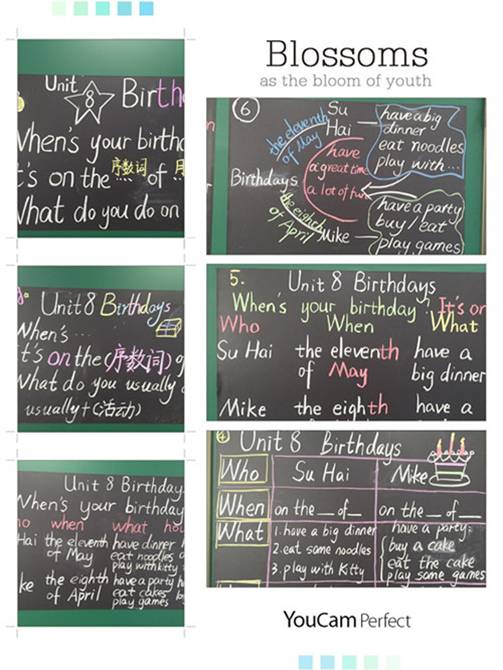 Blossoms
as the bloom of youth
Unit 8 Birth
When's your birthd
t's on the 序数词 of 月
What do you do on
6
Su Hai
the eleventh of May
have a big dinner
eat noodles
play with ...
Birthdays
have a great time
a lot of fun
the eighth of April
Mike
have a party
buy / eat
play games
Unit 8 Birthdays
When's
t's on the (序数词) o
What do you usually
usually + (活动)
5.
Unit 8 Birthdays
When's your birthday? It's on
Who When What
Su Hai the eleventh of May have a big dinner
Mike the eighth have a
Unit 8 Birthday
When's your birthday
ho when what ho
Hai the eleventh of May have dinner
eat noodles
play with kitty
ke the eighth of April have a party
eat cakes
play games
4
Unit 8 Birthdays
Who Su Hai Mike
When on the _ of _ on the _ of _
What
1. have a big dinner
2. eat some noodles
3. play with Kitty
have a party
buy a cake
eat the cake
play some games
YouCam Perfect